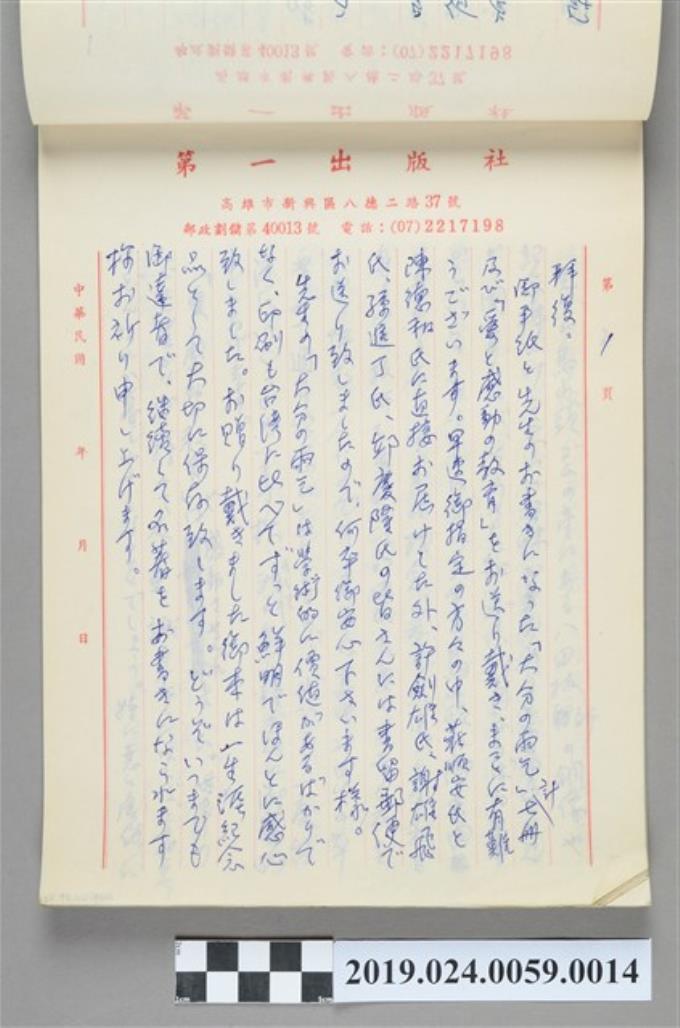 第一出版社
高雄市新興區八德二路37號
郵政劃儲第40013號 電話:(07)2217198
第1頁
拜復、
御手紙と先生のお書きになった「大分の雨乞」計七冊
及び「愛と感動の教育」をお送り戴き、まことに有難
うございます。早速御指定の方々の中、蔡順安氏と
陳德和氏に直接お届けした外、許劍雄氏、謝雄飛
氏、孫進丁氏、邱慶隆氏の皆さんには書留郵便で
お送り致しましたので、何卒御安心下さいます様。
先生の「大分の雨乞」は学術的に価値があるばかりで
なく、印刷も台湾に比べてずっと鮮明でほんとに感心
致しました。お贈り戴きました御本は一生涯紀念
品として大切に保存致します。どうぞいつまでも
御達者で、継続して名著をお書きになられます
様お祈り申し上げます。
中華民國 年 月 日
2019.024.0059.0014